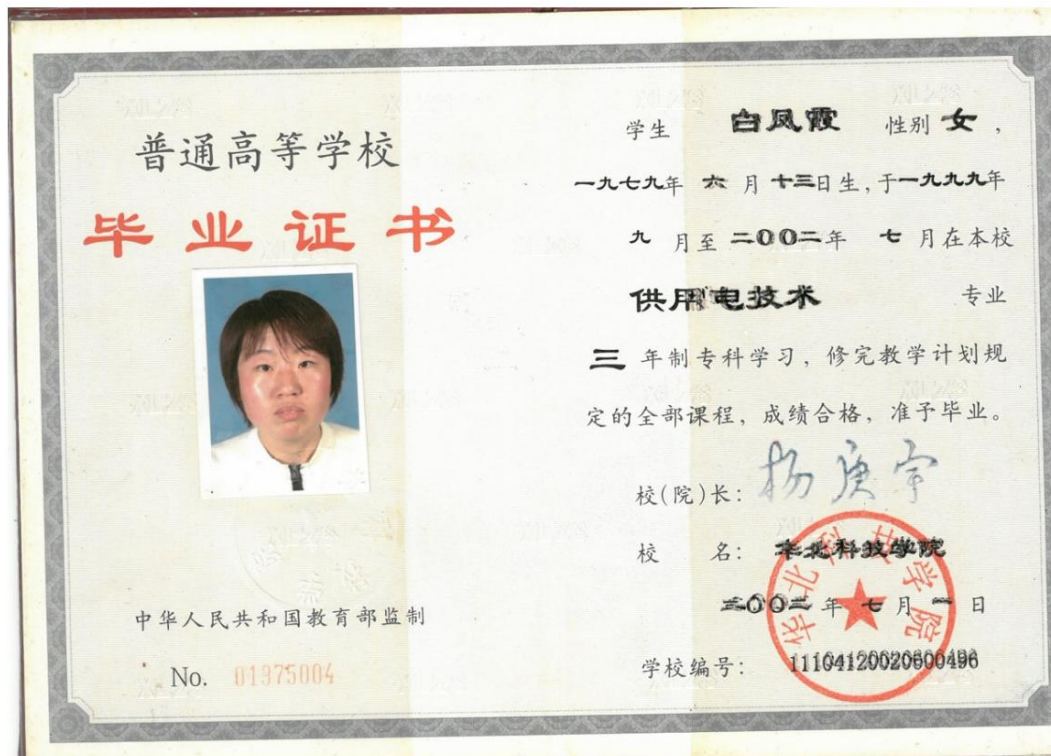 普通高等学校
毕业证书
中华人民共和国教育部监制
No. 01375004
学生 白凤霞 性别 女，
一九七九年 六 月 十三日生，于一九九九年
九 月至 二〇〇二年 七 月在本校
供用电技术 专业
三 年制专科学习，修完教学计划规
定的全部课程，成绩合格，准予毕业。
校(院)长： 杨庚宇
校 名： 华北科技学院
二〇〇二 年 七 月 一 日
学校编号： 111041200206000496
华北科技学院